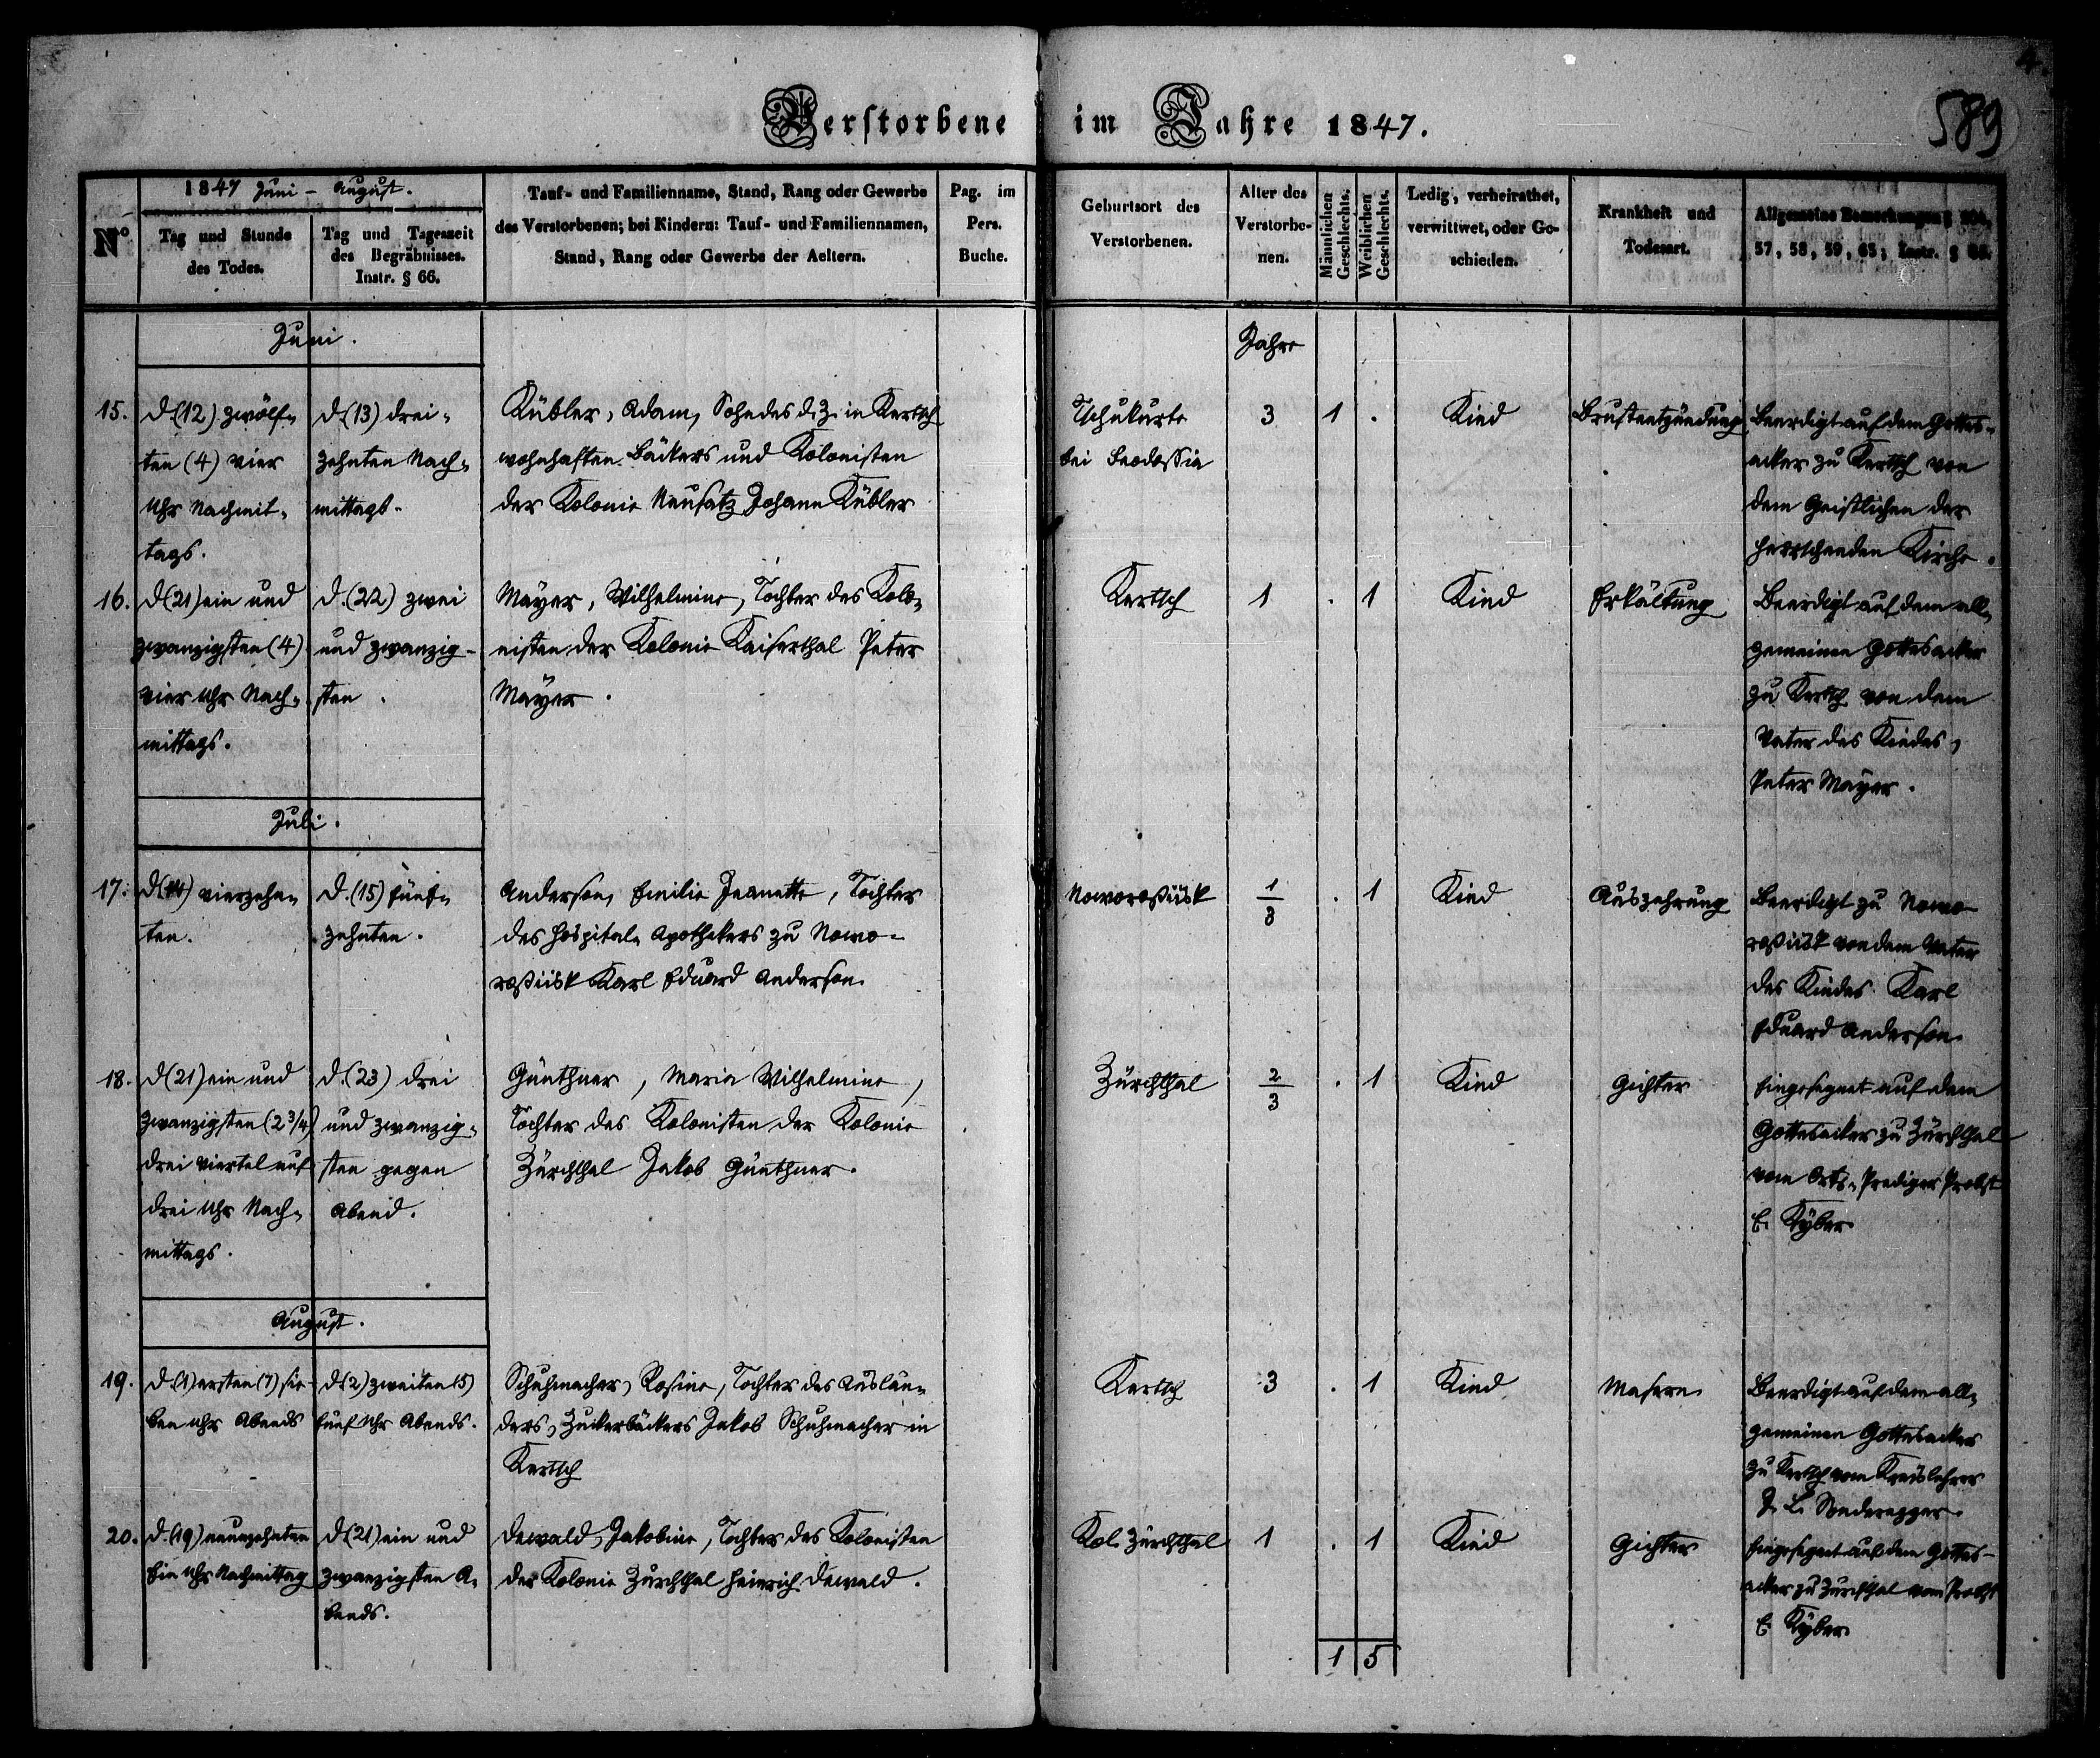 4.
589
Verstorbene im Jahre 1847.
Nº
1847 Juni - August.
Tag und Stunde
des Todes.
Tag und Tageszeit
des Begräbnisses.
Instr. § 66.
Tauf- und Familienname, Stand, Rang oder Gewerbe
des Verstorbenen; bei Kindern: Tauf- und Familiennamen,
Stand, Rang oder Gewerbe der Aeltern.
Pag. im
Pers.
Buche.
Geburtsort des
Verstorbenen.
Alter des
Verstorbe-
nen.
Männlichen
Geschlechts.
Weiblichen
Geschlechts.
Ledig, verheirathet,
verwittwet, oder Ge-
schieden.
Krankheit und
Todesart.
Allgemeine Bemerkungen §
57, 58, 59, 65; Instr. §
Juni.
Jahre
15.
d. (12) zwölf-
ten (4) vier
Uhr Nachmit-
tags.
d. (13) drei-
zehnten Nach-
mittags.
Kübler, Adam, Sohn des d. Z. in Kertsch
wohnhaften Bäckers und Kolonisten
der Kolonie Neusatz Johann Kübler
Tschukurts
bei Feodossia
3
1
.
Kind
Brustentzündung
Beerdigt auf dem Gottes-
acker zu Kertsch von
dem Geistlichen der
herrschenden Kirche.
16.
d. (21) ein und
zwanzigsten (4)
vier Uhr Nach-
mittags.
d. (22) zwei
und zwanzig-
sten.
Mayer, Wilhelmine, Tochter des Kolo-
nisten der Kolonie Kaiserthal Peter
Mayer.
Kertsch
1
.
1
Kind
Erkältung
Beerdigt auf dem all-
gemeinen Gottesacker
zu Kertsch von dem
Vater des Kindes,
Peter Mayer.
Juli.
17.
d. (14) vierzehn-
ten.
d. (15) fünf-
zehnten.
Anderson, Emilie Jeanette, Tochter
des Hospital-Apothekers zu Nowo-
roßiisk Karl Eduard Anderson.
Noworoßiisk
1/3
.
1
Kind
Auszehrung
Beerdigt zu Nowo-
roßiisk von dem Vater
des Kindes Karl
Eduard Anderson.
18.
d. (21) ein und
zwanzigsten (2 3/4)
drei Viertel auf
drei Uhr Nach-
mittags.
d. (23) drei
und zwanzig-
sten gegen
Abend.
Günthner, Maria Wilhelmine,
Tochter des Kolonisten der Kolonie
Zürchthal Jakob Günthner.
Zürchthal
2/3
.
1
Kind
Gichter
Eingesegnet auf dem
Gottesacker zu Zürchthal
vom Orts-Prediger Probst
E. Kyber.
August.
19.
d. (1) ersten (7) sie-
ben Uhr Abends
d. (2) zweiten (5)
fünf Uhr Abends.
Schuhmacher, Rosine, Tochter des Auslän-
ders, Zuckerbäckers Jakob Schuhmacher in
Kertsch
Kertsch
3
.
1
Kind
Masern
Beerdigt auf dem all-
gemeinen Gottesacker
zu Kertsch vom Kreislehrer
J. L. Sonderegger.
20.
d. (19) neunzehnten
Ein Uhr Nachmittag
d. (21) ein und
zwanzigsten A-
bends.
Dewald, Jakobine, Tochter des Kolonisten
der Kolonie Zürchthal Heinrich Dewald.
Kol. Zürchthal
1
.
1
Kind
Gichter
Eingesegnet auf dem Gottes-
acker zu Zürchthal vom Probst
E. Kyber.
1
5